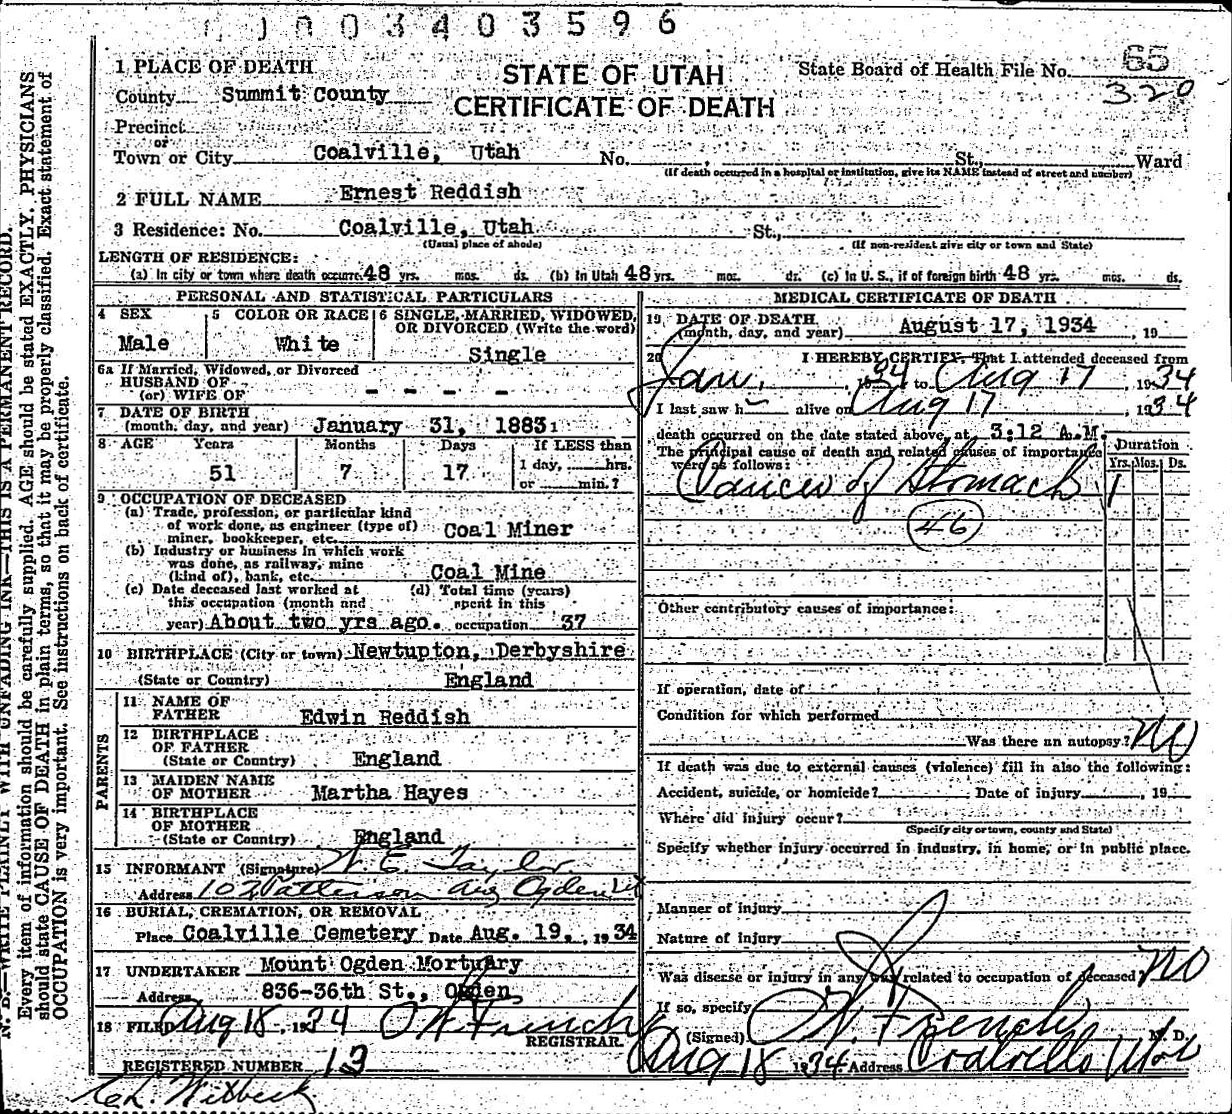 0 0 3 4 0 3 5 9 6
STATE OF UTAH
CERTIFICATE OF DEATH
State Board of Health File No. 65
320
1 PLACE OF DEATH
County Summit County
Precinct
or
Town or City Coalville, Utah No. , St., Ward
(If death occurred in a hospital or institution, give its NAME instead of street and number)
2 FULL NAME Ernest Reddish
3 Residence: No. Coalville, Utah St.,
(Usual place of abode) (If non-resident give city or town and State)
LENGTH OF RESIDENCE:
(a) In city or town where death occurre. 48 yrs. mos. ds. (b) In Utah 48 yrs. mos. ds. (c) In U. S., if of foreign birth 48 yrs. mos. ds.
PERSONAL AND STATISTICAL PARTICULARS
4 SEX 5 COLOR OR RACE 6 SINGLE, MARRIED, WIDOWED, OR DIVORCED (Write the word)
Male White Single
6a If Married, Widowed, or Divorced
HUSBAND OF
(or) WIFE OF - - - -
7 DATE OF BIRTH
(month, day, and year) January 31, 1883
8 AGE Years Months Days If LESS than
51 7 17 1 day, hrs.
or min.?
9 OCCUPATION OF DECEASED
(a) Trade, profession, or particular kind
of work done, as engineer (type of)
miner, bookkeeper, etc. Coal Miner
(b) Industry or business in which work
was done, as railway, mine
(kind of), bank, etc. Coal Mine
(c) Date deceased last worked at (d) Total time (years)
this occupation (month and spent in this
year) About two yrs ago. occupation 37
10 BIRTHPLACE (City or town) Newtupton, Derbyshire
(State or Country) England
PARENTS
11 NAME OF
FATHER Edwin Reddish
12 BIRTHPLACE
OF FATHER
(State or Country) England
13 MAIDEN NAME
OF MOTHER Martha Hayes
14 BIRTHPLACE
OF MOTHER
(State or Country) England
15 INFORMANT (Signature) W. E. Taylor
Address 102 Patterson Ave Ogden Ut
16 BURIAL, CREMATION, OR REMOVAL
Place Coalville Cemetery Date Aug. 19, 1934
17 UNDERTAKER Mount Ogden Mortuary
Address 836-36th St., Ogden
18 FILED Aug 18, 1934 O W French
REGISTRAR
REGISTERED NUMBER 13
MEDICAL CERTIFICATE OF DEATH
19 DATE OF DEATH
(month, day, and year) August 17, 1934 , 19
20 I HEREBY CERTIFY, That I attended deceased from
Jan, 1934 to Aug 17, 1934
I last saw h alive on Aug 17, 1934
death occurred on the date stated above, at 3:12 A.M.
The principal cause of death and related causes of importance
were as follows:
Duration
Yrs. Mos. Ds.
Cancer of Stomach 1
46
Other contributory causes of importance:
If operation, date of
Condition for which performed
Was there an autopsy? No
If death was due to external causes (violence) fill in also the following:
Accident, suicide, or homicide? Date of injury , 19
Where did injury occur?
(Specify city or town, county and State)
Specify whether injury occurred in industry, in home, or in public place.
Manner of injury
Nature of injury
Was disease or injury in any way related to occupation of deceased No
If so, specify
(Signed) O W. French M. D.
Aug 18 1934 Address Coalville Utah
N. B.—WRITE PLAINLY WITH UNFADING INK—THIS IS A PERMANENT RECORD.
Every item of information should be carefully supplied. AGE should be stated EXACTLY. PHYSICIANS
should state CAUSE OF DEATH in plain terms, so that it may be properly classified. Exact statement of
OCCUPATION is very important. See instructions on back of certificate.